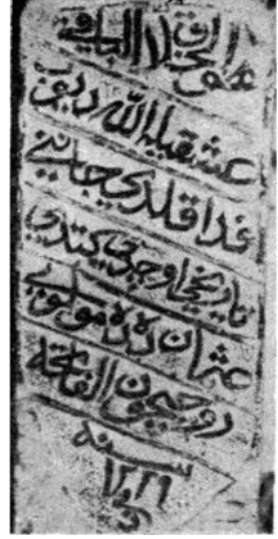 هو الخلاق الباقي
عشقيله الله ديوب
فدا قلدي جانني
تاريخي اوچدي كتدي
عثمان دده مولوي
روحيچون الفاتحه
سنه
١٢٢٩